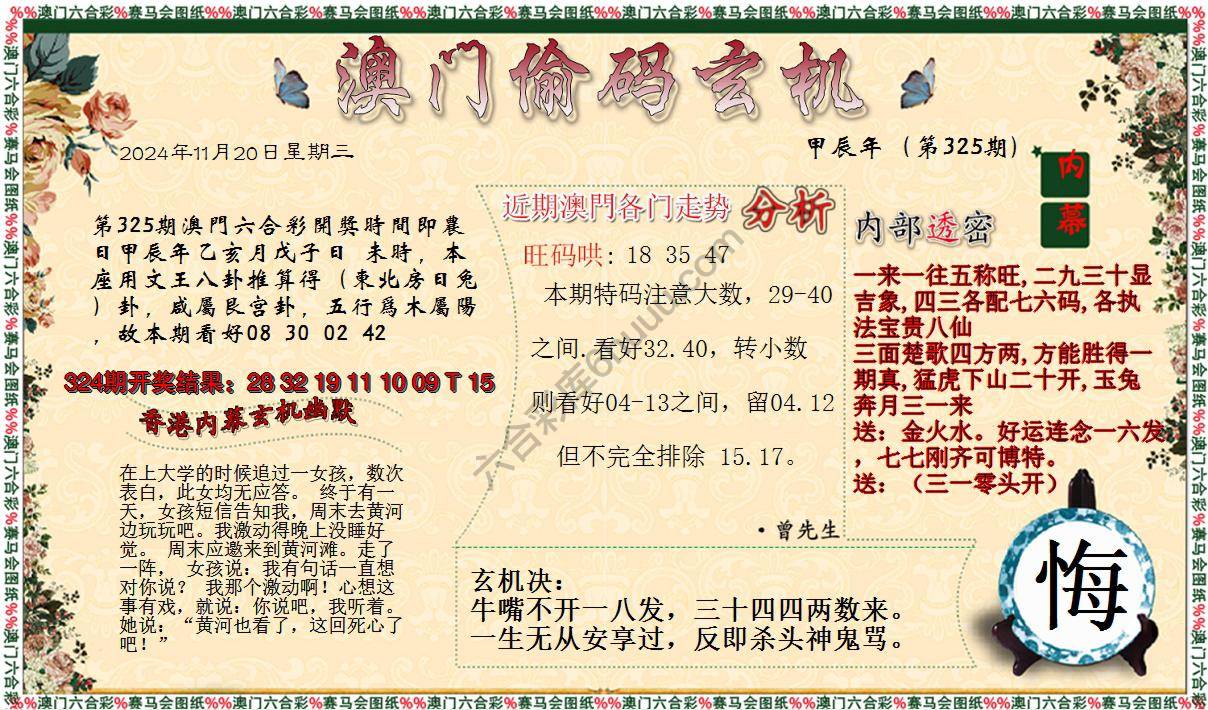 %%澳门六合彩%赛马会图纸%%澳门六合彩%赛马会图纸%%澳门六合彩%赛马会图纸%%澳门六合彩%赛马会图纸%%澳门六合彩%赛马会图纸%%澳门六合彩%赛马会图纸%%
澳门偷码玄机
2024年11月20日星期三
甲辰年（第325期）
内幕
第325期澳門六合彩開獎時間即農
日甲辰年乙亥月戊子日 未時，本
座用文王八卦推算得（東北房日兔
）卦，咸屬艮宫卦，五行爲木屬陽
，故本期看好08 30 02 42
324期开奖结果：28 32 19 11 10 09 T 15
香港内幕玄机幽默
在上大学的时候追过一女孩，数次
表白，此女均无应答。 终于有一
天，女孩短信告知我，周末去黄河
边玩玩吧。我激动得晚上没睡好
觉。 周末应邀来到黄河滩。走了
一阵， 女孩说：我有句话一直想
对你说？ 我那个激动啊！心想这
事有戏，就说：你说吧，我听着。
她说：“黄河也看了，这回死心了
吧！”
近期澳門各门走势 分析
旺码哄: 18 35 47
本期特码注意大数，29-40
之间.看好32.40，转小数
则看好04-13之间，留04.12
但不完全排除 15.17。
·曾先生
内部透密
一来一往五称旺,二九三十显
吉象,四三各配七六码,各执
法宝贵八仙
三面楚歌四方两,方能胜得一
期真,猛虎下山二十开,玉兔
奔月三一来
送：金火水。好运连念一六发
，七七刚齐可博特。
送：（三一零头开）
玄机决：
牛嘴不开一八发，三十四四两数来。
一生无从安享过，反即杀头神鬼骂。
悔
%%澳门六合彩%赛马会图纸%%澳门六合彩%赛马会图纸%%澳门六合彩%赛马会图纸%%澳门六合彩%赛马会图纸%%澳门六合彩%赛马会图纸%%澳门六合彩%赛马会图纸%%